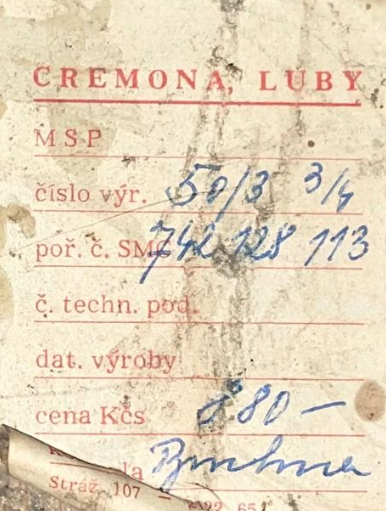 CREMONA, LUBY
MSP
číslo výr. 50/3 3/4
poř. č. SMC 742 128 113
č. techn. pod.
dat. výroby
cena Kčs 880 —
Stráž, 107 – 22 65